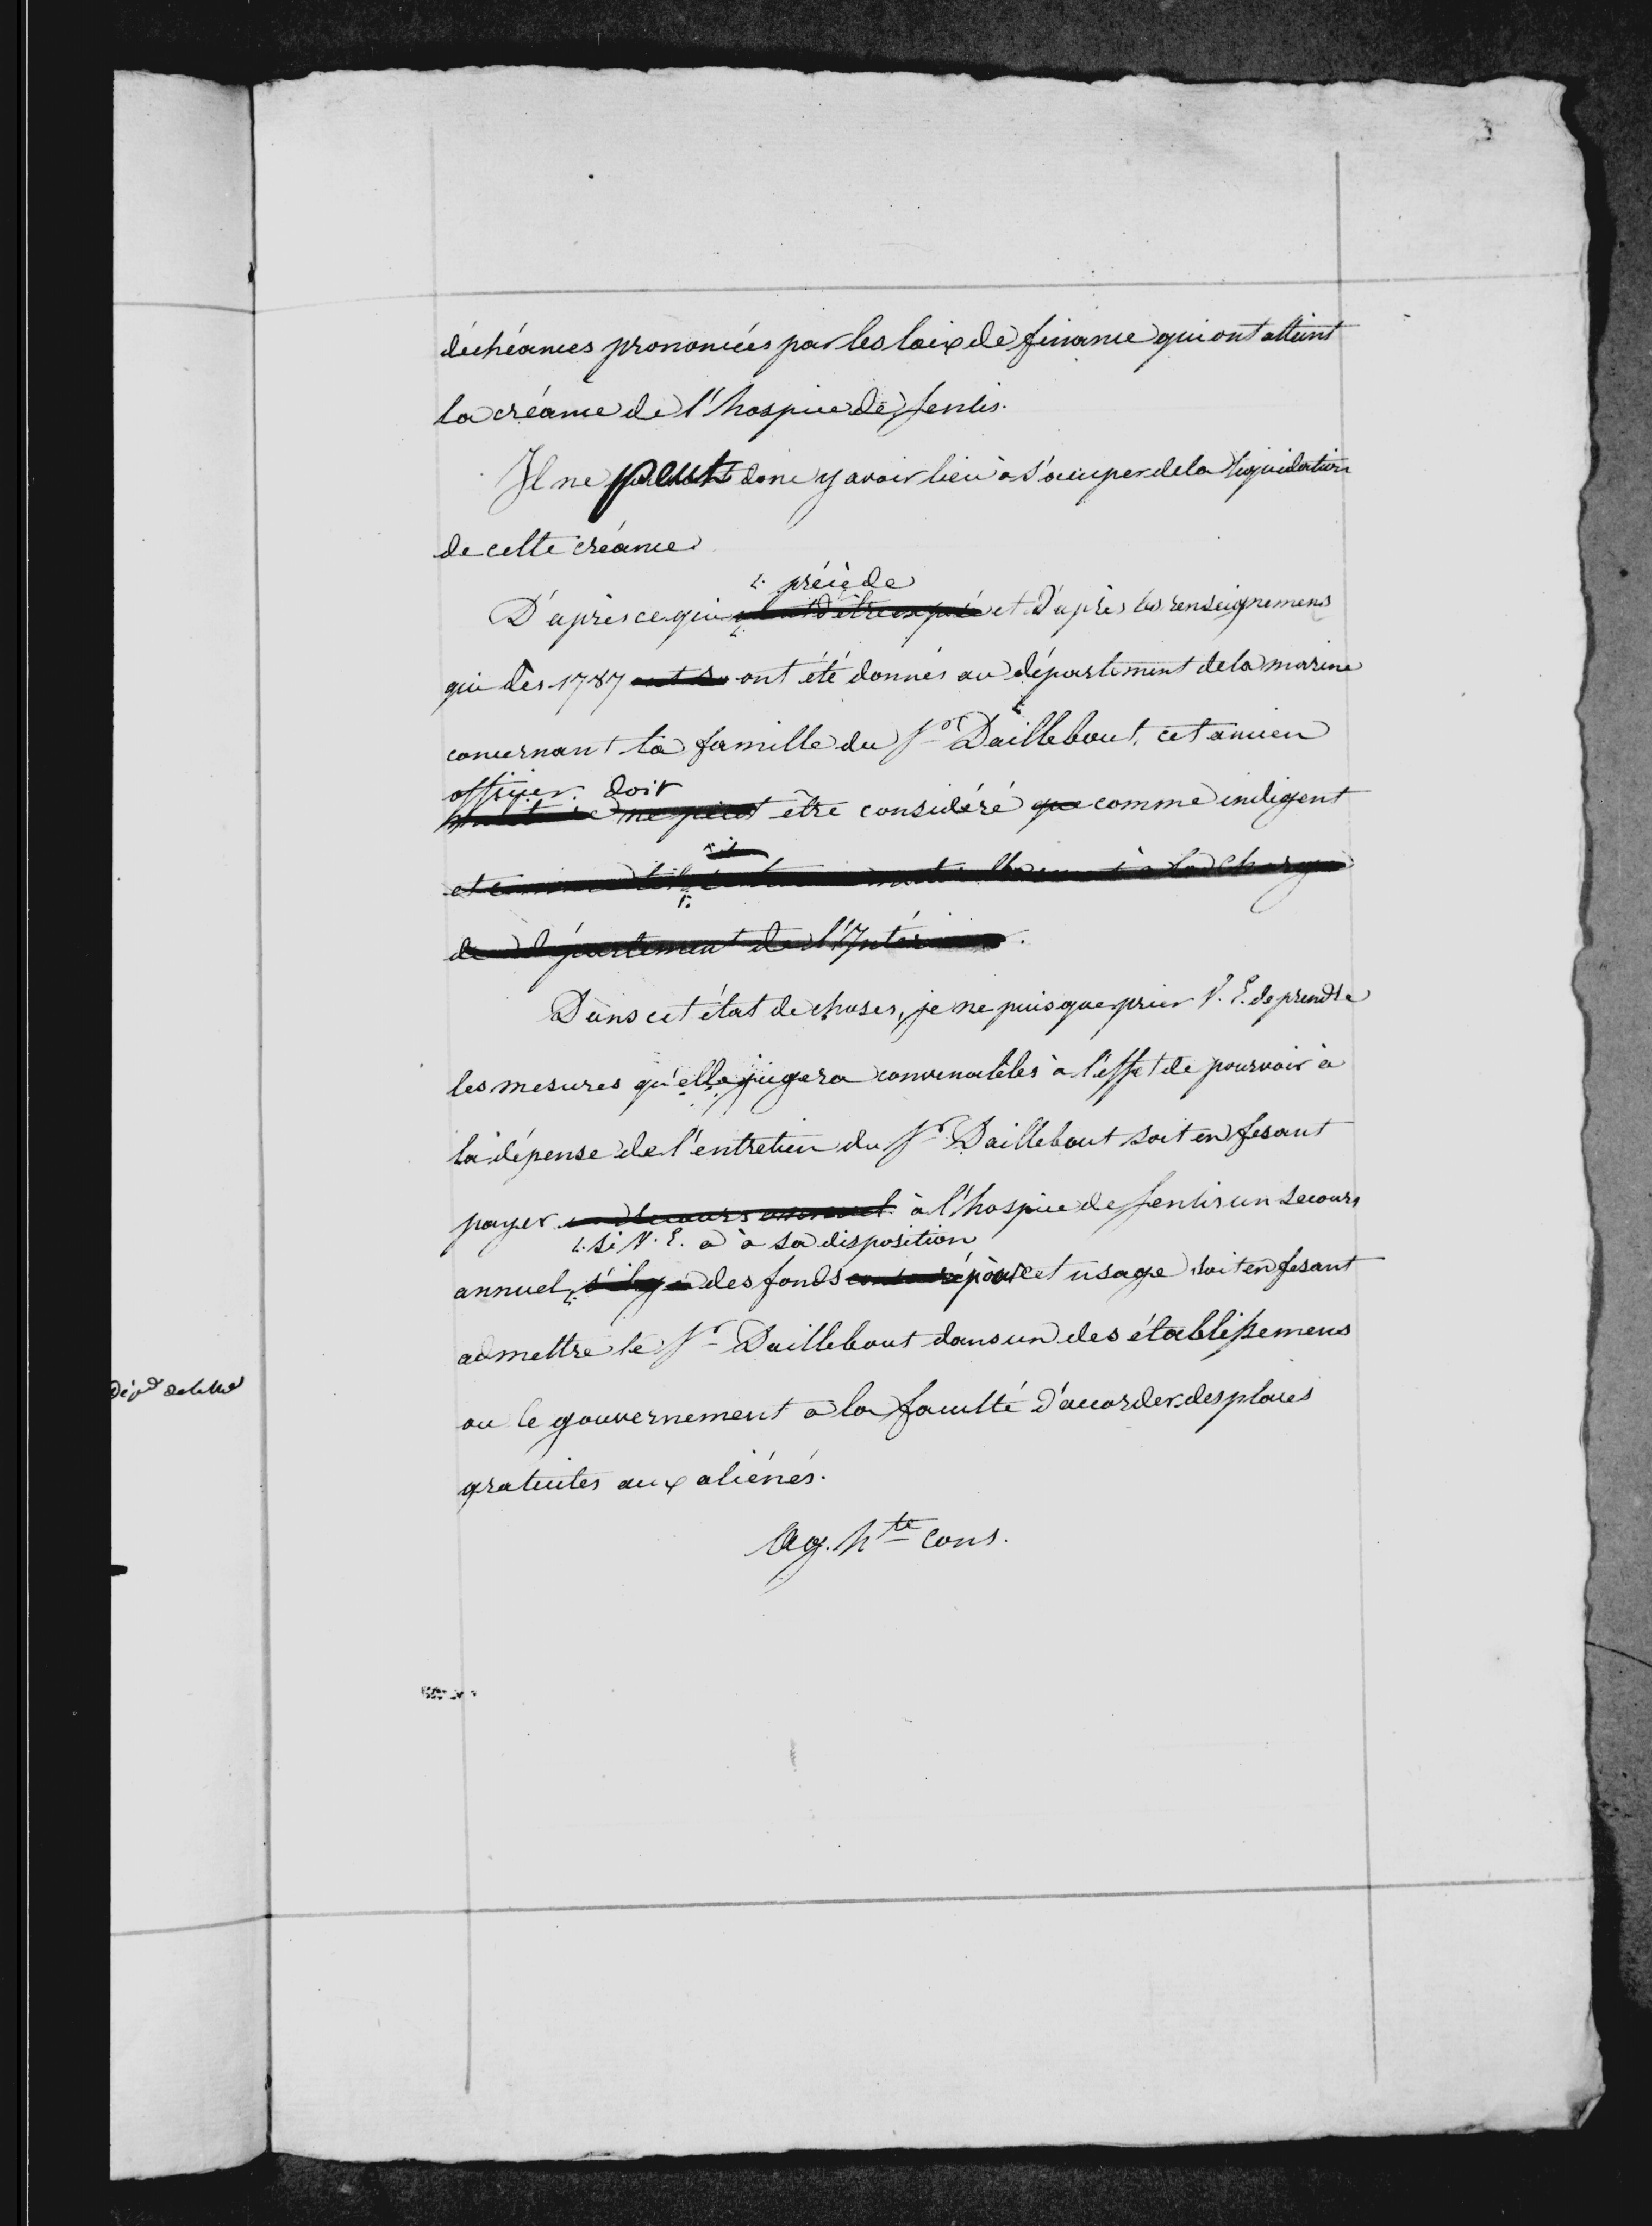 3
déchéances prononcées par les loix de finance qui ont atteint
la créance de l'hospice de Senlis.
Il ne peut donc y avoir lieu à s'occuper de la liquidation
de cette créance.
précède
D'après ce qui vient d'être exposé et d'après les renseignemens
qui dès 1787 ont été donnés au département de la marine
concernant la famille du Sr Daillebout, cet ancien
officier doit
ne peut être considéré que comme indigent
et à la charge
de département de l'Intérieur.
Dans cet état de choses, je ne puis que prier V. E. de prendre
les mesures qu'elle jugera convenables à l'effet de pourvoir à
la dépense de l'entretien du Sr Daillebout soit en fesant
payer un secours annuel à l'hospice de Senlis un secours
si V. E. a à sa disposition
annuel, s'il y a des fonds pour cet usage soit en fesant
admettre le Sr Daillebout dans un des établissemens
ou le gouvernement a la faculté d'accorder des places
gratuites aux aliénés.
Ag. hte cons.